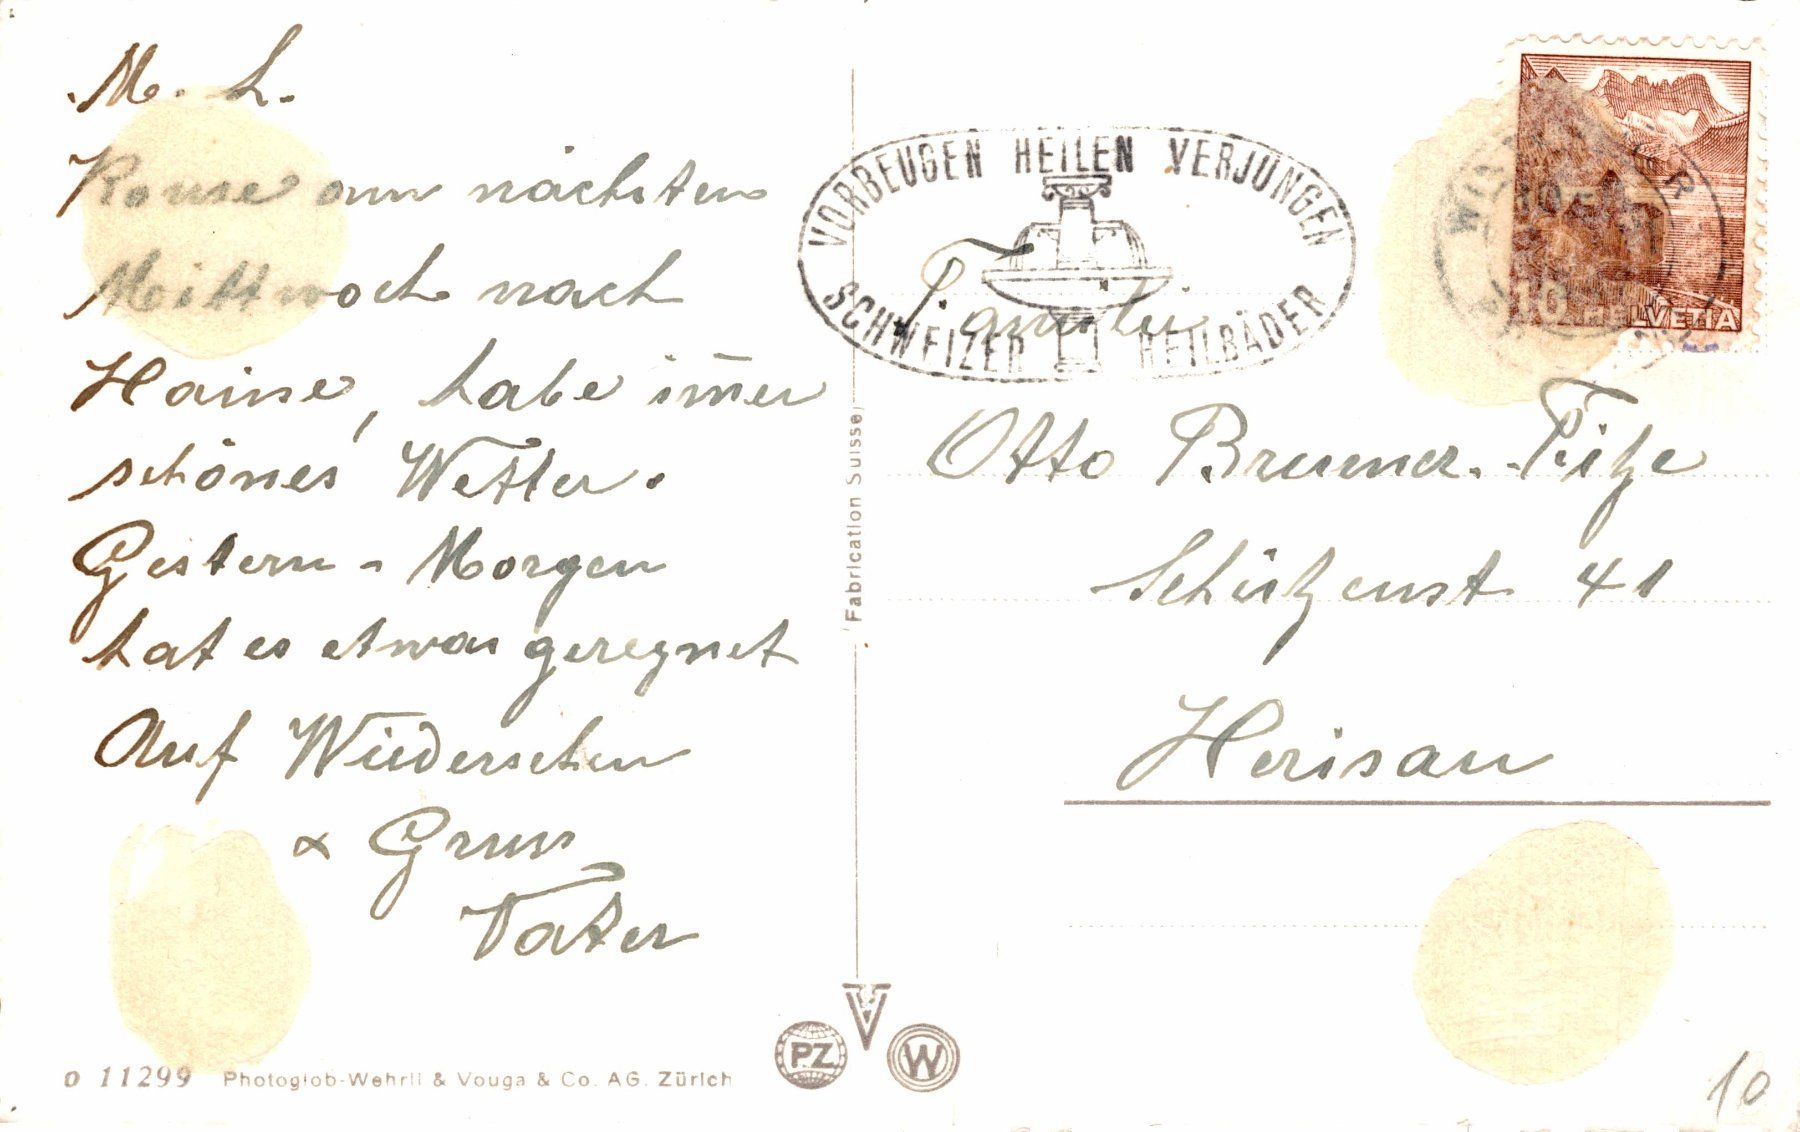 M. L.
Komme am nächsten
Mittwoch nach
Hause, habe im̄er
schönes Wetter.
Gestern - Morgen
hat es etwas geregnet
Auf Wiedersehen
& Gruss
Vater
o 11299 Photoglob-Wehrli & Vouga & Co. AG. Zürich
Fabrication Suisse
VORBEUGEN HEILEN VERJÜNGEN
SCHWEIZER HEILBÄDER
10 HELVETIA
Familie
Otto Brunner-
Schützenst 41
Herisau
PZ
V
W
10